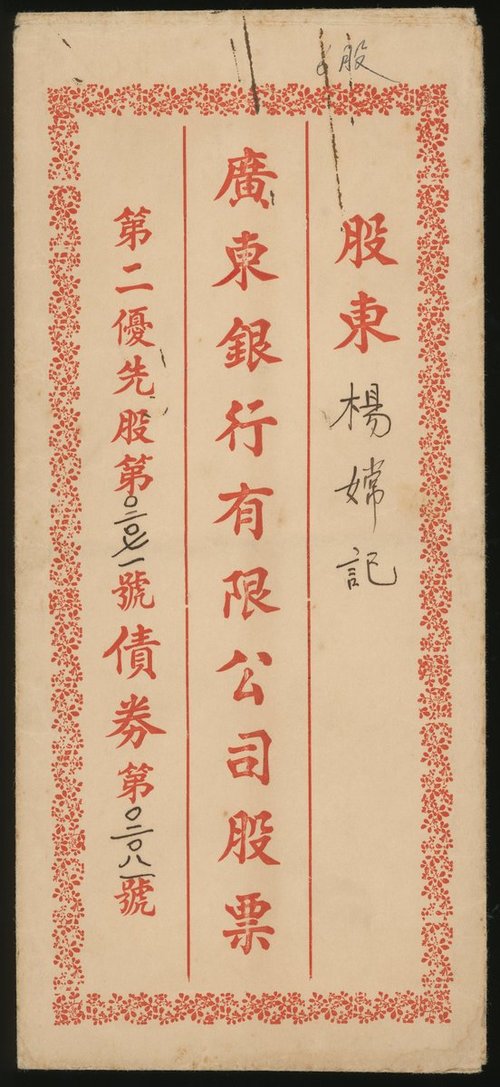 股
股東 楊嫦記
廣東銀行有限公司股票
第二優先股第〇二〇七一號債券第〇二〇八一號